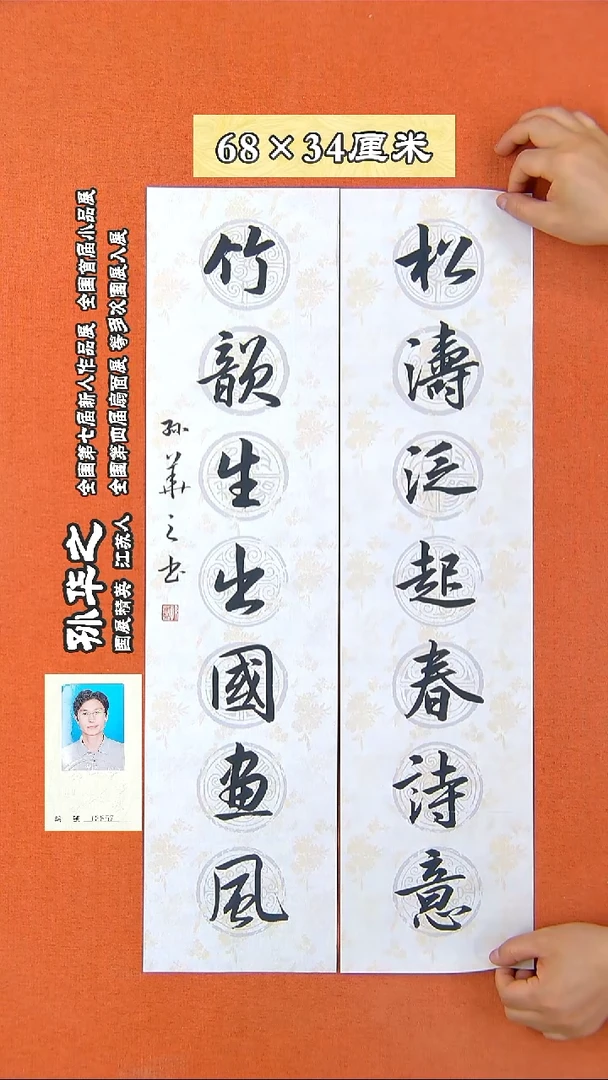 68×34厘米
松濤泛起春詩意
竹韻生出國画風
孫華之书
孙华之
国展精英 江苏人
全国第七届新人作品展 全国首届小品展
全国第四届扇面展 等多次国展入展